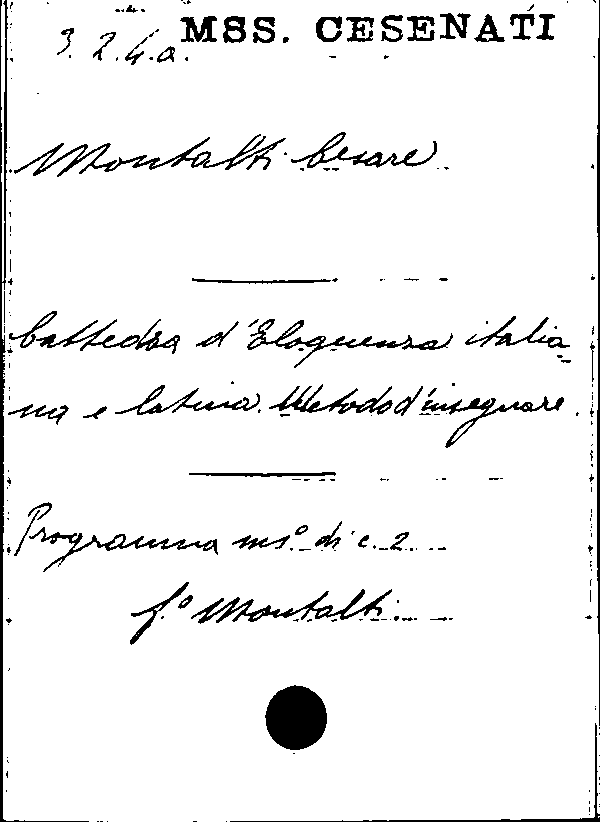 3.2.4.a.
MSS. CESENATI
Montalti Cesare
Cattedra d'Eloquenza italia-
na e latina. Metodo d'insegnare.
Programma ms.º di c. 2
f.º Montalti.